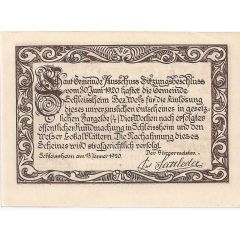 Laut Gemeinde Ausschuss Sitzungsbeschluss
vom 30 Juni 1920 haftet die Gemeinde
Schleissheim Bez. Wels für die Einlösung
dieses unverzinslichen Gutscheines in gesetz-
lichen Bargelde Vier Wochen nach erfolgter
öffentlicher Kundmachung in Schleissheim und den
Welser Lokal Blättern. Die Nachahmung dieses
Scheines wird strafgerichtlich verfolgt.
Schleissheim am 1920. Der Bürgermeister: